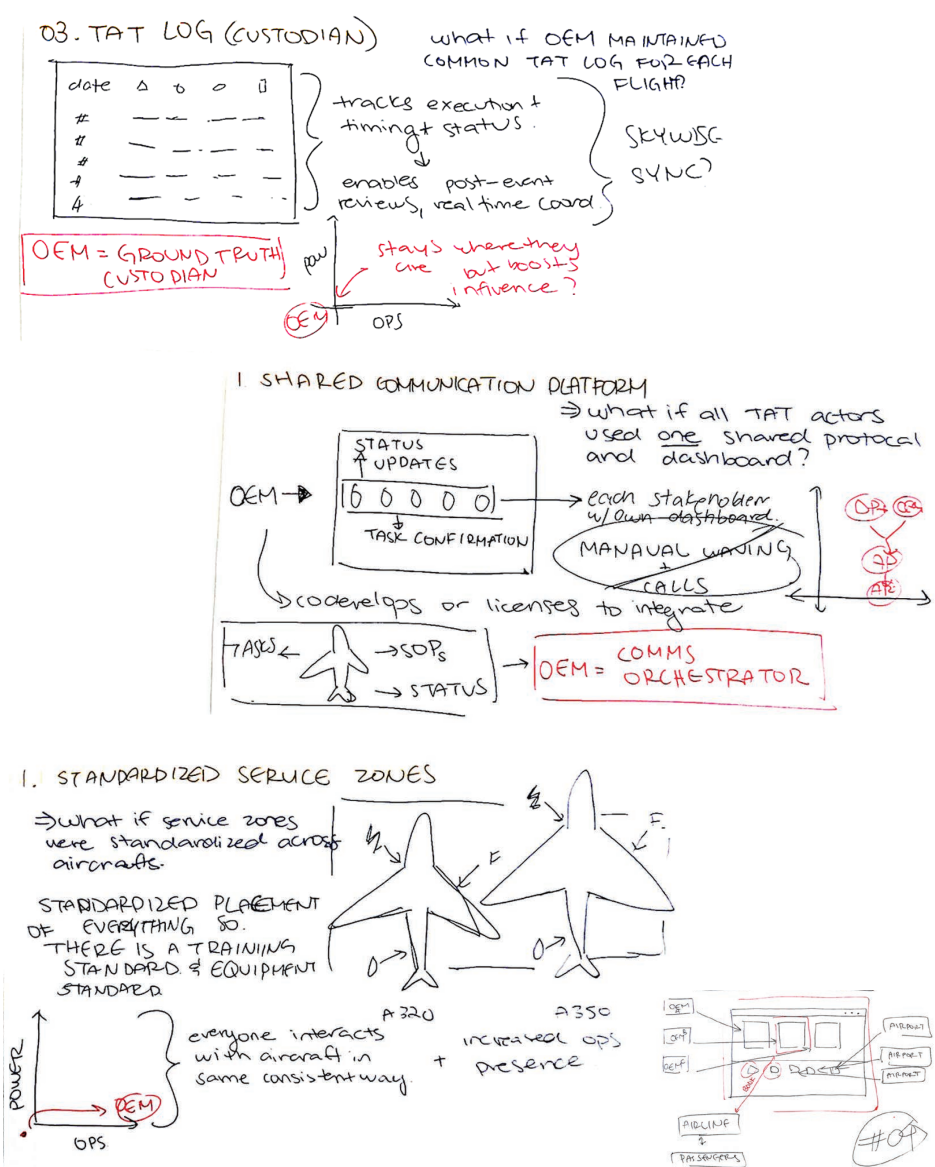 03. TAT LOG (CUSTODIAN)
what if OEM MAINTAINED
COMMON TAT LOG FOR EACH
FLIGHT?
date
tracks execution +
timing + status.
enables post-event
reviews, real time coord.
SKYWISE
SYNC?
OEM = GROUND TRUTH
CUSTODIAN
pow
stays where they
are but boosts
influence?
OEM
OPS
1 SHARED COMMUNICATION PLATFORM
⇒ what if all TAT actors
used one shared protocal
and dashboard?
STATUS
UPDATES
OEM
TASK CONFIRMATION
each stakeholder
w/ own dashboard.
MANAUAL WAVING
+
CALLS
codevelops or licenses to integrate
TASKS
SOPs
STATUS
OEM = COMMS
ORCHESTRATOR
1. STANDARDIZED SERVICE ZONES
⇒ what if service zones
were standardized across
aircrafts.
STANDARDIZED PLACEMENT
OF EVERYTHING SO.
THERE IS A TRAINIING
STANDARD & EQUIPMENT
STANDARD
F
F.
A320
A350
POWER
OEM
OPS
everyone interacts
with aircraft in
same consistent way.
+
increased ops
presence
OEM
OEM
OEM
AIRPORT
AIRPORT
AIRPORT
AIRLINE
PASSENGERS